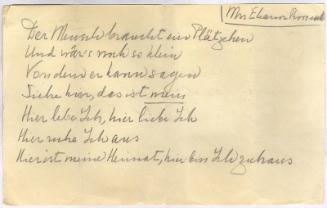 Mrs Eleanor
Der Mensch braucht ein Plätzchen
Und wär's noch so klein
Von dem er kann sagen
Siehe hier, das ist mein
Hier lebe Ich, hier liebe Ich
Hier ruhe Ich aus
Hier ist meine Heimat, hier bin Ich zuhaus